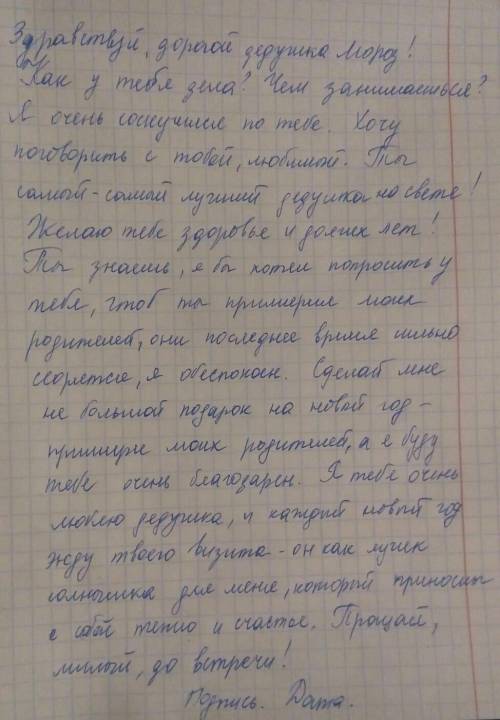 Здравствуй, дорогой дедушка Мороз!
Как у тебя дела? Чем занимаешься?
Я очень соскучился по тебе. Хочу
поговорить с тобой, любимый. Ты
самый-самый лучший дедушка на свете!
Желаю тебе здоровье и долгих лет!
Ты знаешь, я бы хотел попросить у
тебя, чтоб ты примирил моих
родителей, они последнее время сильно
ссорятся, я обеспокоен. Сделай мне
не большой подарок на новый год -
примири моих родителей, а я буду
тебе очень благодарен. Я тебе очень
люблю дедушка, и каждый новый год
жду твоего визита - он как лучик
солнышка для меня, который приносит
с собой тепло и счастье. Прощай,
милый, до встречи!
Подпись. Дата.